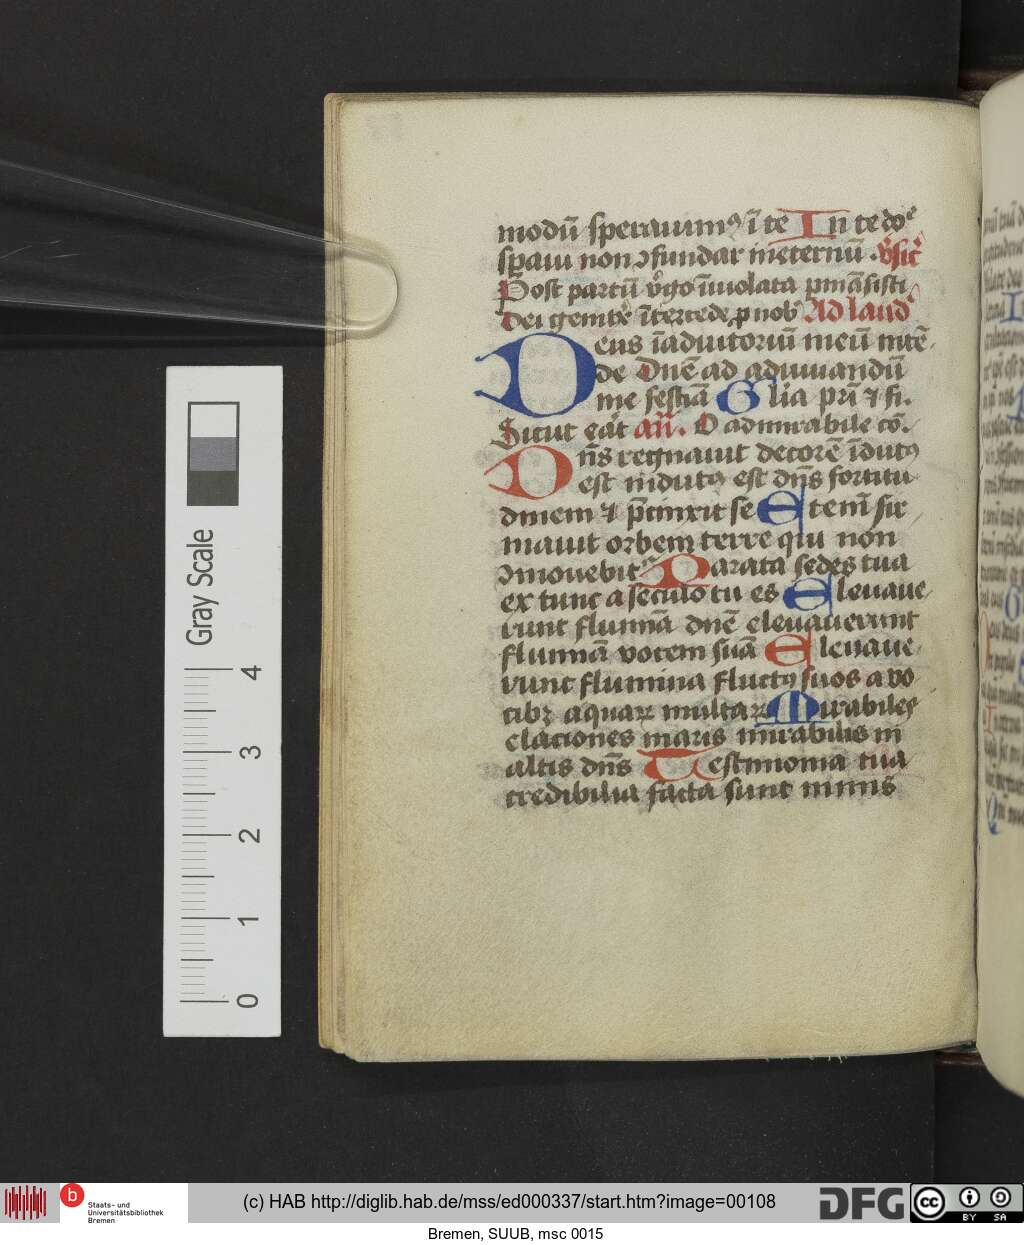 modū speravimꝰ ī te In te doᵉ
spaui non ꝯfundar ineternū . v̾sic̄
Post partū v̾go īuiolata pmāsisti
Dei genitx̄ ītercede p nob̾ Ad laud̾
Deus īadiutoriū meū intē
de Dn̄e ad adiuuandū
me festīā Glīa pr̄i ⁊ fi.
Sicut eāt an̄. O admirabile cō.
Dn̄s regnauit decorē īdutꝰ
est indutꝰ est dn̄s fortitu
dinem ⁊ p̄cinxit se Etem̄ fir
mauit orbem terre qui non
ꝯmouebit᷑ Parata sedes tua
ex tunc a seculo tu es Eleuaue
runt flumīa dn̄e eleuauerunt
flumīa vocem suā Eleuaue
runt flumina fluctꝰ suos a vo
cibꝫ aquaꝝ multaꝝ Mirabiles
elationes maris mirabilis in
altis dn̄s Testimonia tua
credibilia facta sunt nimis
Gray Scale
4
3
2
1
0
b Staats- und
Universitätsbibliothek
Bremen
(c) HAB http://diglib.hab.de/mss/ed000337/start.htm?image=00108
DFG
cc BY SA
Bremen, SUUB, msc 0015